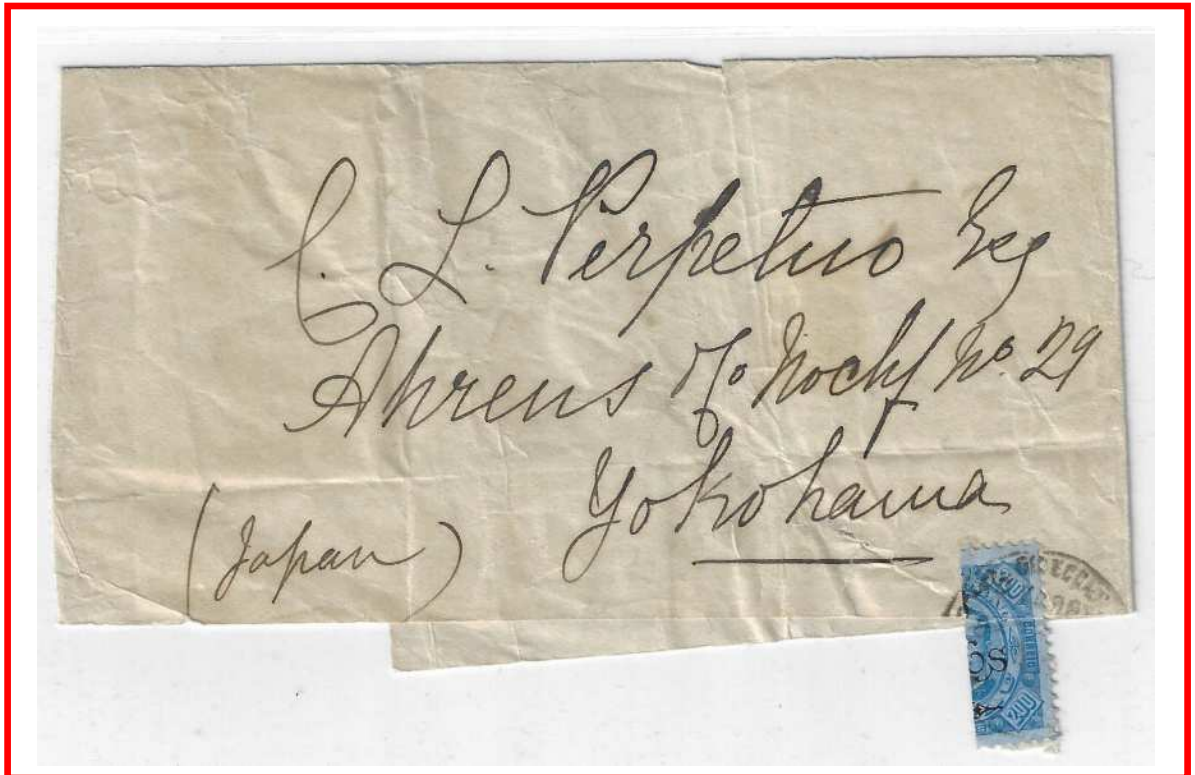 C. L. Perpetuo Esq
Ahrens
No. 29
Yokohama
(Japan)
CORREIO
OS
200